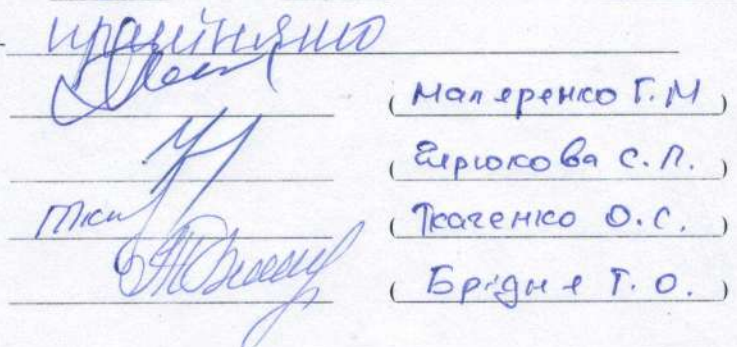 прийнято
(Маляренко Г.М)
(Бірюкова С.П.)
Ткач (Ткаченко О.С.)
(Брідня Т.О.)